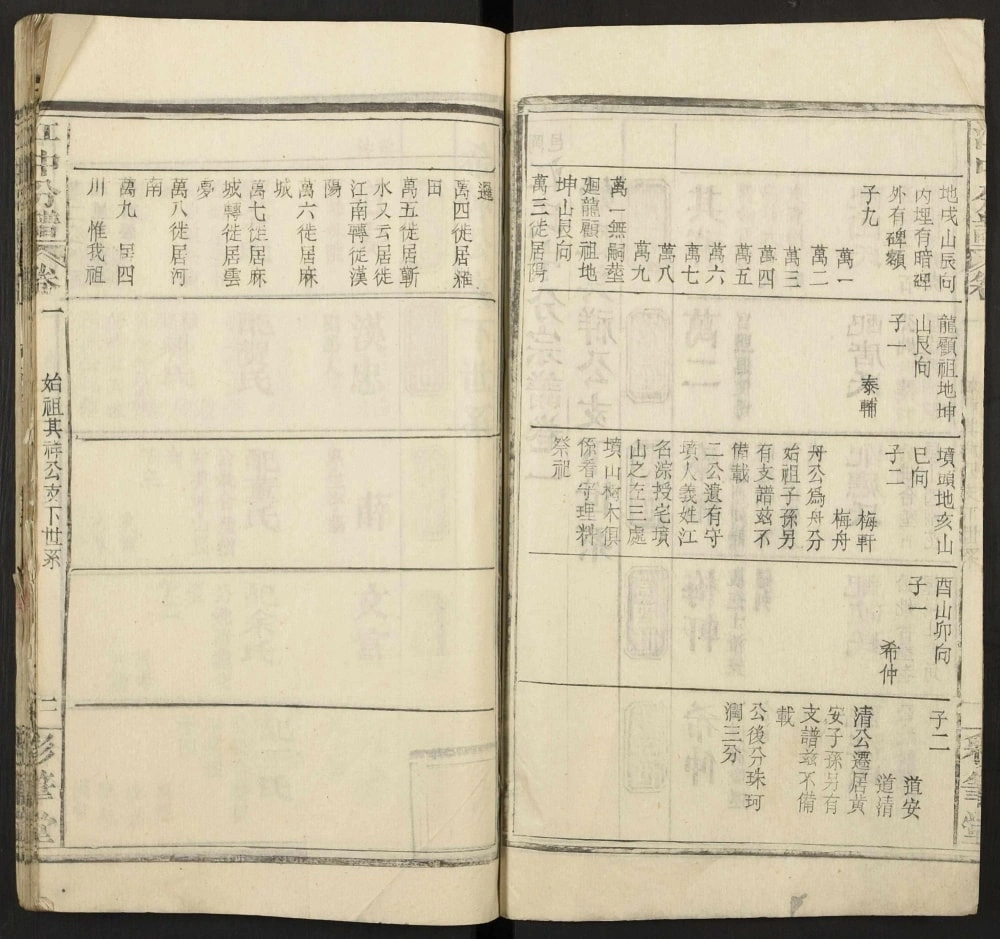 地戌山辰向
内埋有暗碑
外有碑額
子九
萬一
萬二
萬三
萬四
萬五
萬六
萬七
萬八
萬九
萬一無嗣塟
廻龍顧祖地
坤山艮向
萬三徙居陽
龍顧祖地坤
山艮向
子一
泰輔
墳頭地亥山
巳向
子二
梅軒
梅舟
舟公為舟分
始祖子孫另
有支譜玆不
備載
二公遺有守
墳人義姓江
名淙授宅墳
山之左三處
墳山樹木俱
係看守理料
祭祀
酉山卯向
子一
希仲
子二
道安
道清
清公遷居黃
安子孫另有
支譜玆不備
載
公後分珠珂
澗三分
邏
萬四徙居雅
田
萬五徙居蘄
水又云居徙
江南轉徙漢
陽
萬六徙居麻
城
萬七徙居麻
城轉徙居雲
夢
萬八徙居河
南
萬九 居四
川 惟我祖
分譜 卷一
始祖其祥公支下世系
二
彭筆堂